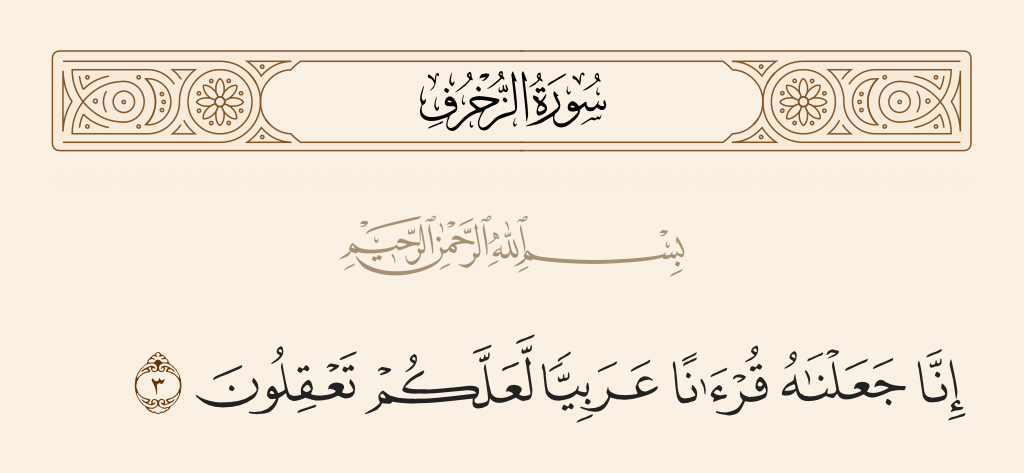 سُورَةُ الزُّخْرُفِ
بِسْمِ ٱللَّهِ ٱلرَّحْمَٰنِ ٱلرَّحِيمِ
إِنَّا جَعَلْنَٰهُ قُرْءَٰنًا عَرَبِيًّا لَّعَلَّكُمْ تَعْقِلُونَ ٣